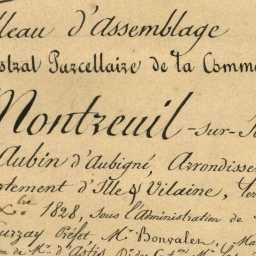 leau d'Assemblage
stral Parcellaire de la Comm
Montreuil -sur-
Aubin d'Aubigné, Arrondisse
rtement d'Ille & Vilaine, ter
bre 1828, sous l'Administration de
urzay Préfet, Mr Bonvalet, Ma
de Mr d'